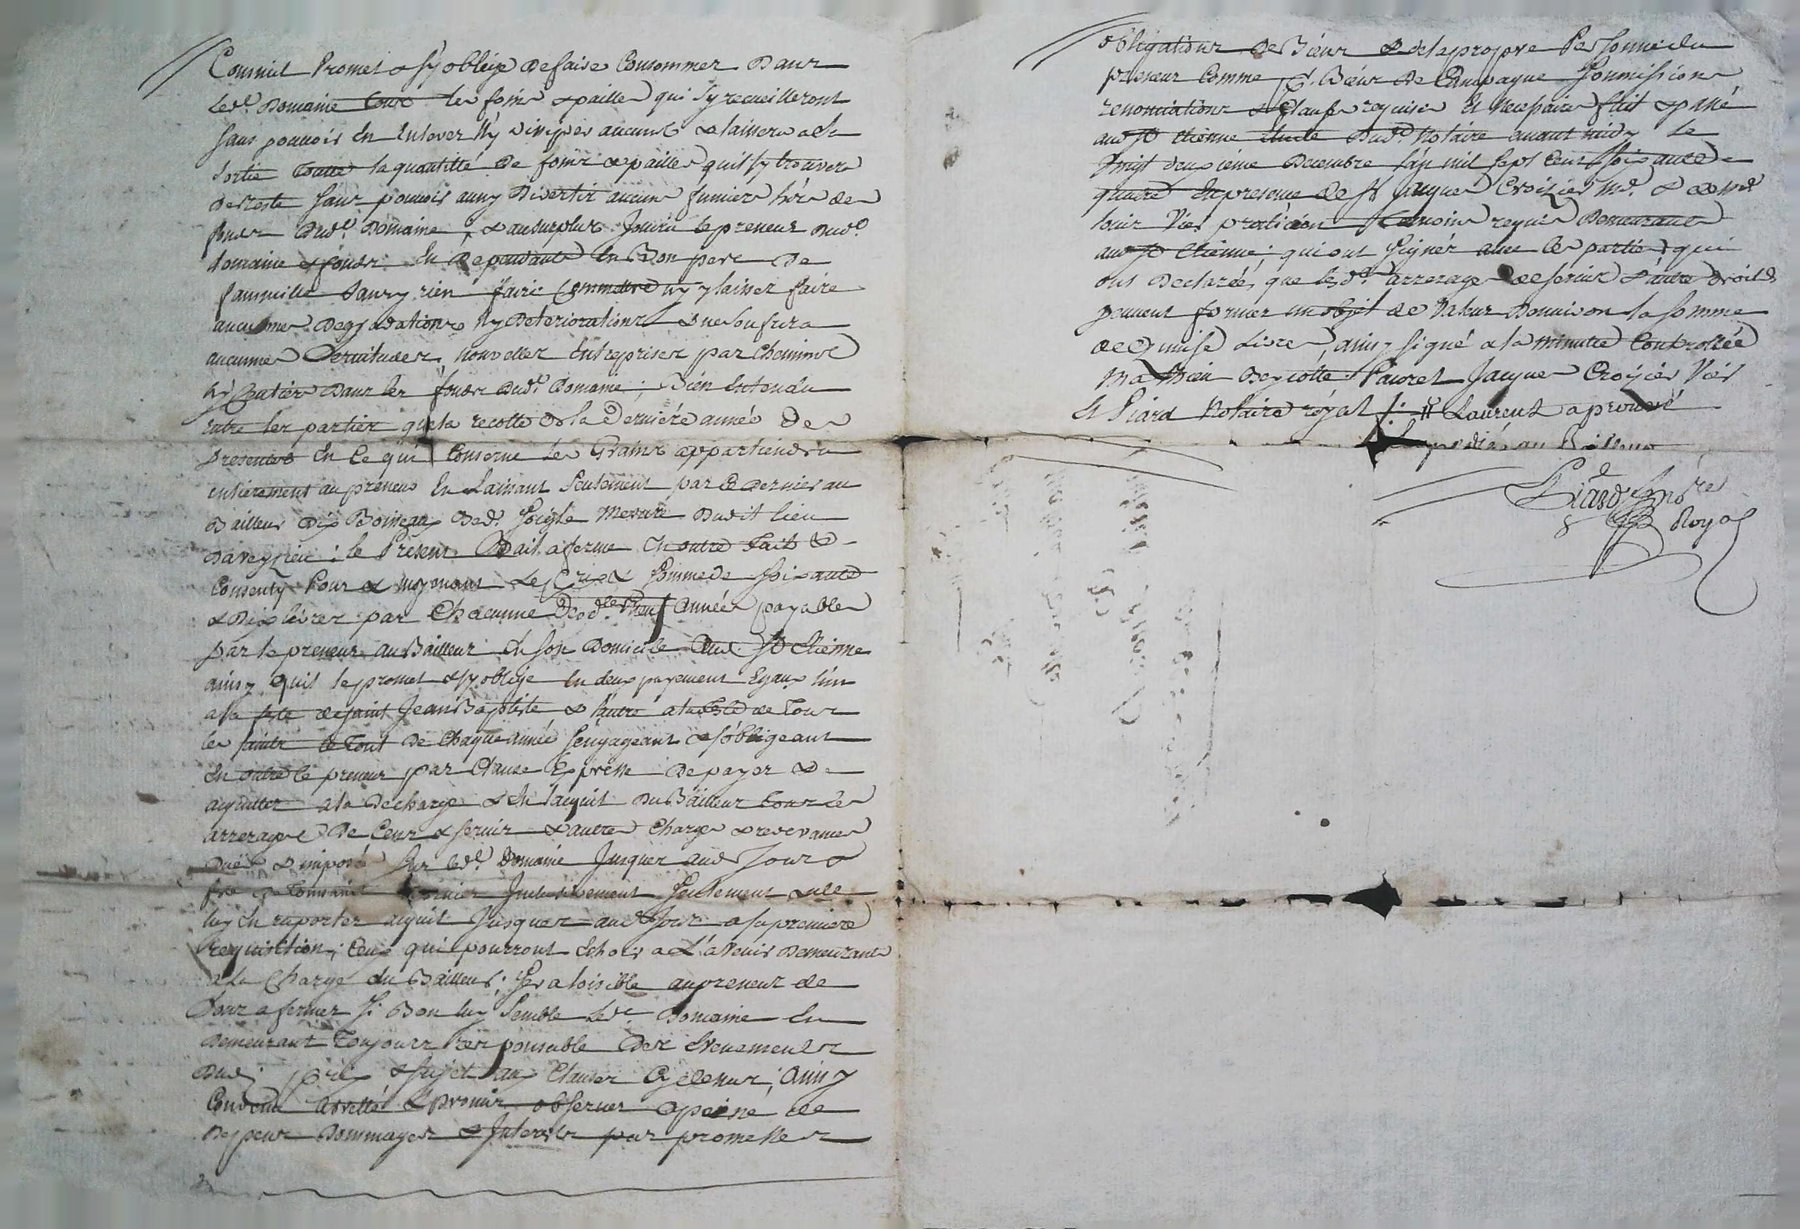 Convenu Promet & s'y oblige de faire Consommer Dans
Led.t Domaine tous les foins & pailles qui s'y recueilleront
sans pouvoir En Enlever N'y Divertir aucuns & laissera a la
sortie toutte la quantitté De foins & pailles quil s'y trouvera
De reste sans pouvoir aussy Divertir aucuns fumiers hors des
fonds Dud.t Domaine, & au surplus Jouira le preneur Dud.t
Domaine & fonds En Dependants En Bon pere De
famille sans y rien faire Commettre ny y laisser faire
aucunnes Degradations Ny Deteriorations & ne soufrira
aucunnes Servitudes nouvelles Entreprises par Chemins
Ny Sentiers Dans les fonds Dud.t Domaine; Bien Entendu
Entre les parties que la recolte De la Derniere année Des
presentes En Ce qui Conserne Les Grains appartiendra
entierement au preneur En Laissant seulement par Ce Dernier au
Bailleur Dix Boisseaux Bled Seigle Mesure Dudit lieu
Daveyzieu: le Present Bail a ferme En outre fait &
Consenty Pour & moyenant Le Prix & somme de soixante
& Dix Livres par Chacunne Desd.tes année payable
par le preneur au Bailleur En son Domicile Aud. St Etienne
ainsy quil le promet & s'y oblige En deux payements Egaux l'un
a la fete de saint Jean Baptiste & l'autre a la fete de Tous
les saints le Tout De Chaque année s'engageant & s'obligeant
En outre le preneur par Clause Expresse De payer & de
aquitter a la Decharge & En l'acquit Du Bailleur tous les
arrerages De Cens & servis & autres Charges & redevances
Dues & imposés sur led.t Domaine Jusques aud. Jour &
fete de Toussaint Dernier Inclusivement seulement & de
luy En raporter acquit Jusques aud. Jour a sa premiere
requisition; Ceux qui pourront Echoir a L'avenir Demeurants
a la Charge du Bailleur; sera loisible au preneur de
sous afermer si Bon luy semble Led.t Domaine En
Demeurant Toujours responsable Des Evenements
Dud. prix & sujet aux Clauses Cy dessus; Ainsy
Convenu arretté & Promis observer a peine de
Depens Dommages & Interets par promesses
obligations De Biens & de la propre Personne du
preneur Comme p.r Biens De Campagne soumissions
renonciations & Clauses requises Et Necessaires fait & passé
aud. St Etienne Etude Dud.t Notaire avant midy Le
Vingt deuxieme Decembre l'an mil sept Cent soixante
quatre En presence de Sr Jacques Croizier Md. &
Viés praticien temoins requis Demeurants
aud. St Etienne qui ont signés avec les parties; qui
ont Declarés, que lesd.ts arrerages de servis & autres Droits
peuvent former un objet de Valeur Donaison la somme
de Quinse Livres, ainsy signé a la minutte Controllée
Mathieu Beycotte Jacques Croizier Viés
Et Piard Notaire royal /: Laurent aprouvé
Expedié au Bailleur
Piard No.re
Royal